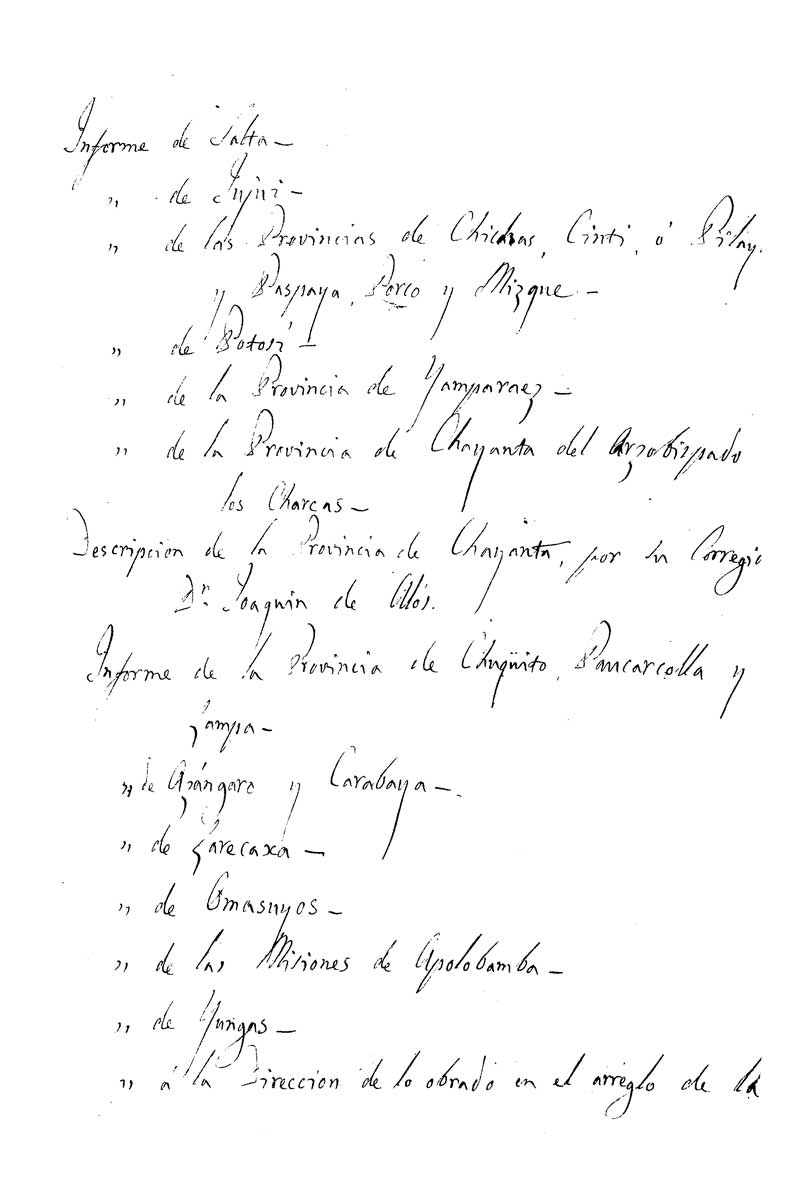 Informe de Salta —
„ de Jujui —
„ de las Provincias de Chichas, Cinti, ó Pilay,
y Paspaya, Porco y Mizque —
„ de Potosí —
„ de la Provincia de Yamparaez —
„ de la Provincia de Chayanta del Arzobispado
los Charcas —
Descripcion de la Provincia de Chayanta, por su Corregi
Dn. Joaquin de Alós.
Informe de la Provincia de Chuqüito, Paucarcolla y
Lampa —
„ de Azángaro y Carabaya —.
„ de Larecaxa —
„ de Omasuyos —
„ de las Misiones de Apolobamba —
„ de Yungas —
„ á la Direccion de lo obrado en el arreglo de la